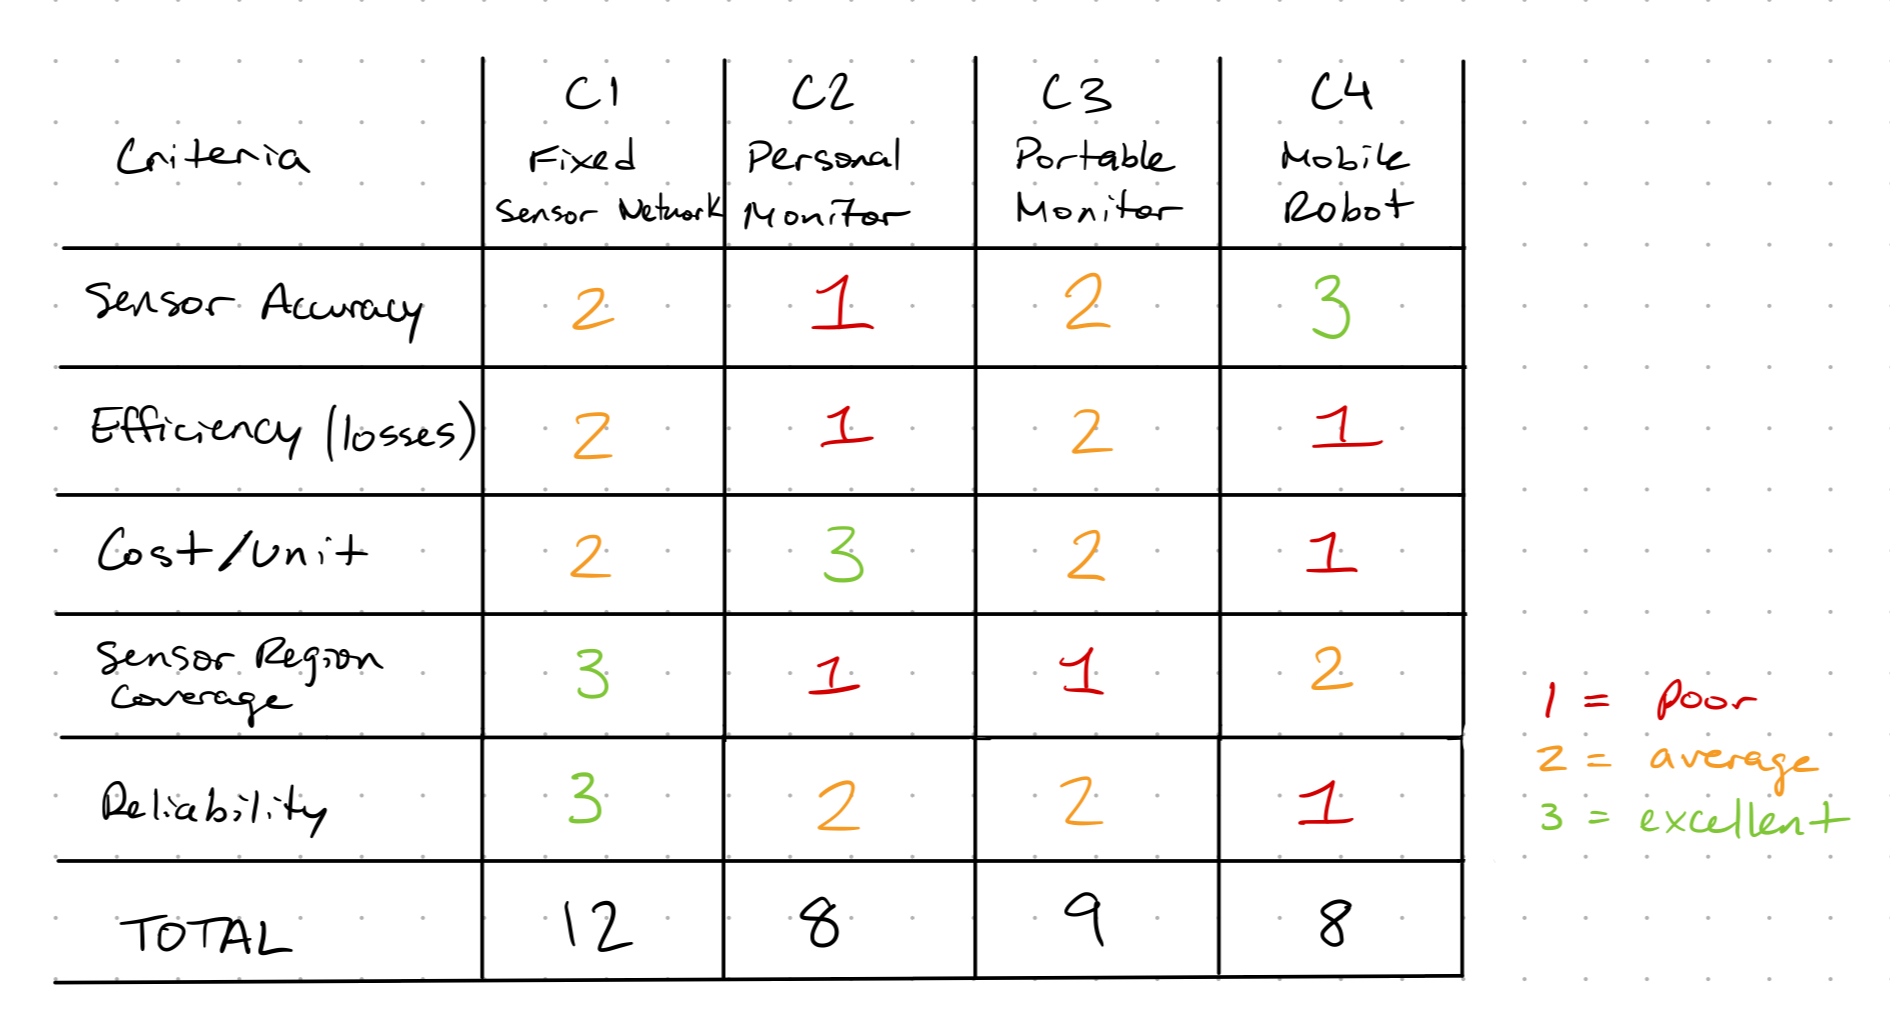 Criteria
C1
Fixed
Sensor Network
C2
Personal
Monitor
C3
Portable
Monitor
C4
Mobile
Robot
Sensor Accuracy 2 1 2 3
Efficiency (losses) 2 1 2 1
Cost/Unit 2 3 2 1
Sensor Region
Coverage
3 1 1 2
Reliability 3 2 2 1
TOTAL 12 8 9 8
1 = poor
2 = average
3 = excellent